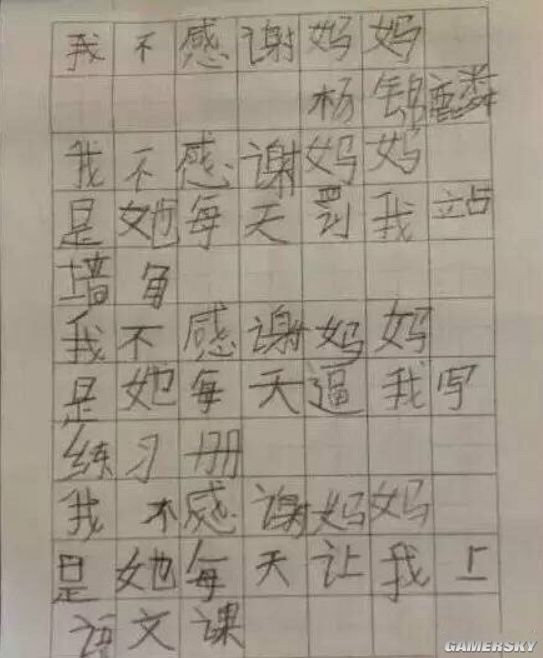 我不感谢妈妈
杨锦麟
我不感谢妈妈
是她每天罚我站
墙角
我不感谢妈妈
是她每天逼我写
练习册
我不感谢妈妈
是她每天让我上
语文课
GAMERSKY